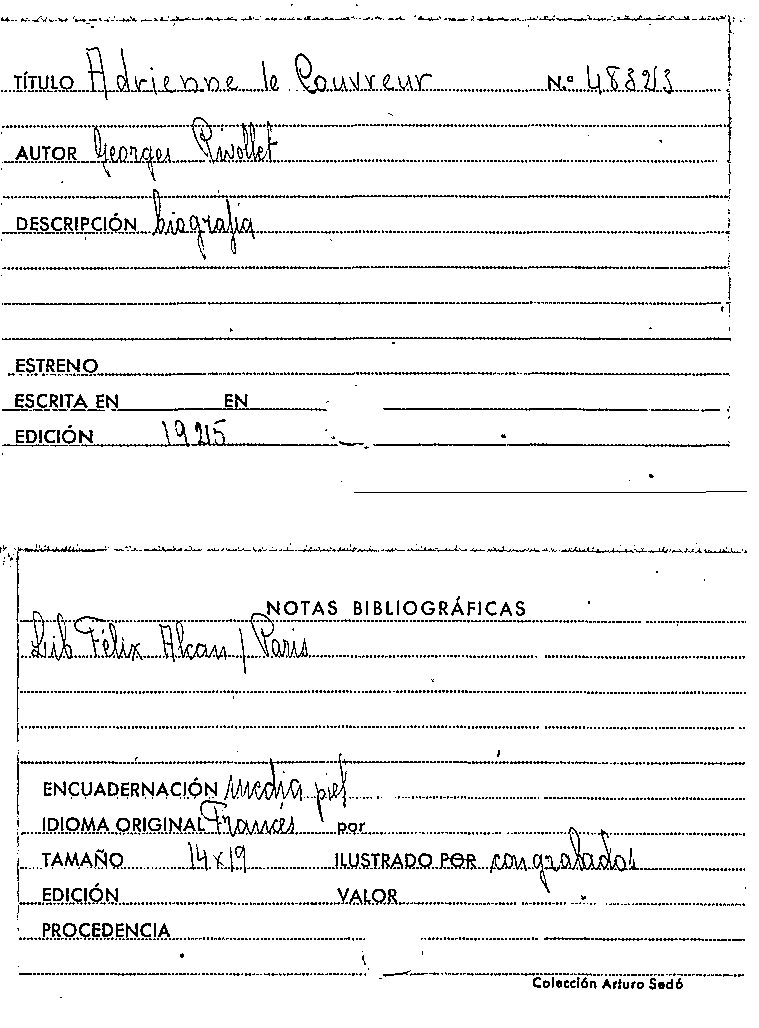 TÍTULO Adrienne le Couvreur N.º 48323
AUTOR Georges Rivollet
DESCRIPCIÓN biografia
ESTRENO
ESCRITA EN EN
EDICIÓN 1925
NOTAS BIBLIOGRÁFICAS
Lib Félix Alcan / Paris
ENCUADERNACIÓN media piel
IDIOMA ORIGINAL Francés por
TAMAÑO 14 x 19 ILUSTRADO POR con grabados
EDICIÓN VALOR
PROCEDENCIA
Colección Arturo Sedó